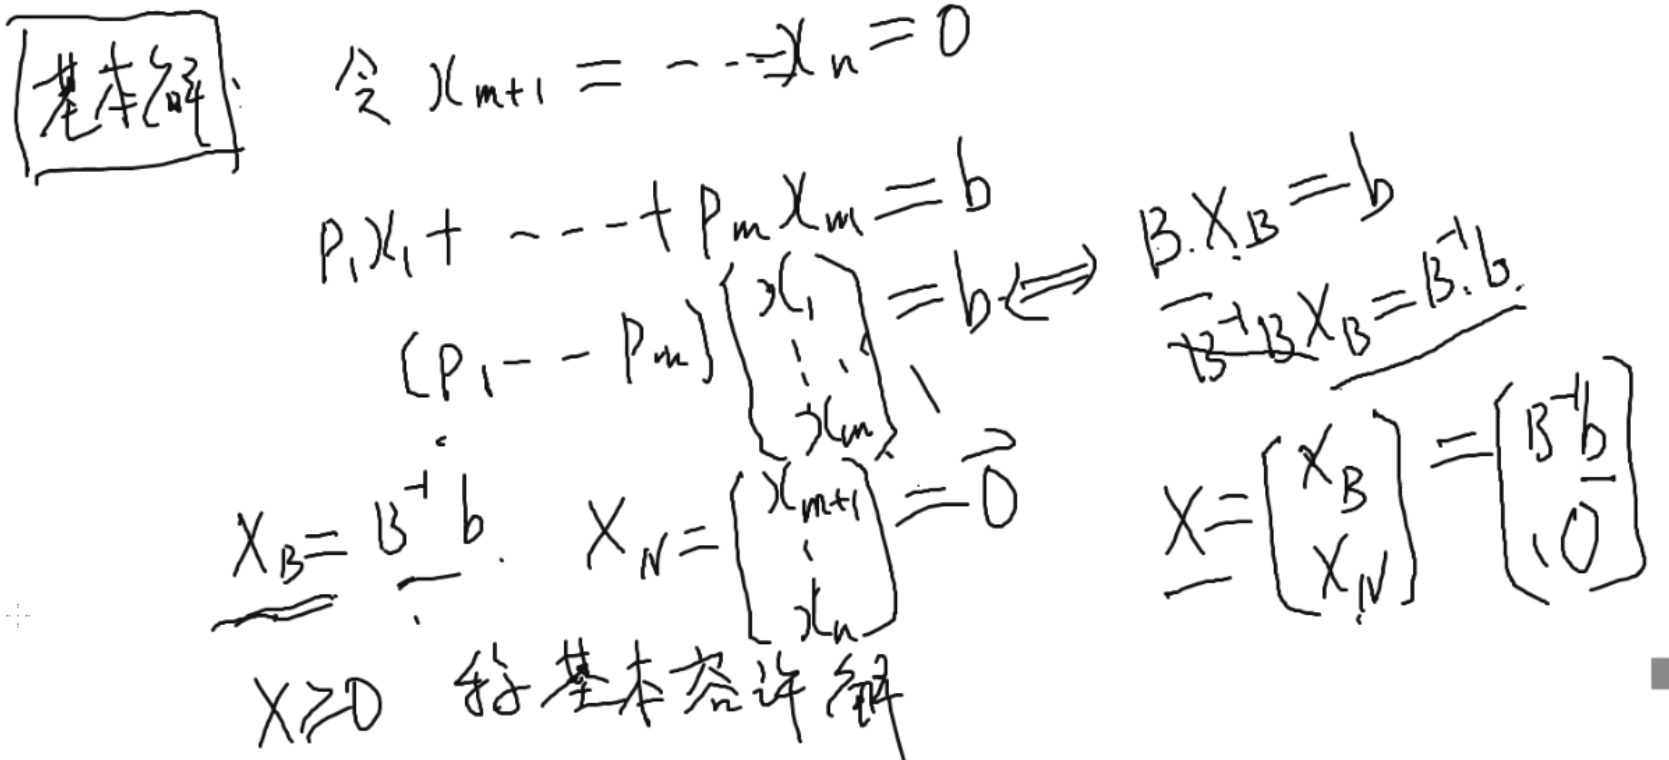 基本解: 令 x_{m+1} = ---- = x_n = 0
P_1 x_1 + ---- + P_m x_m = b
(P_1 -- P_m) (x_1 ⋮ x_m) = b ⟺ B·X_B = b
B^{-1}B X_B = B^{-1}·b.
X_B = B^{-1} b. X_N = (x_{m+1} ⋮ x_n) = \vec{0}
X = (X_B X_N) = (B^{-1}b 0)
X ≥ 0 称基本容许解